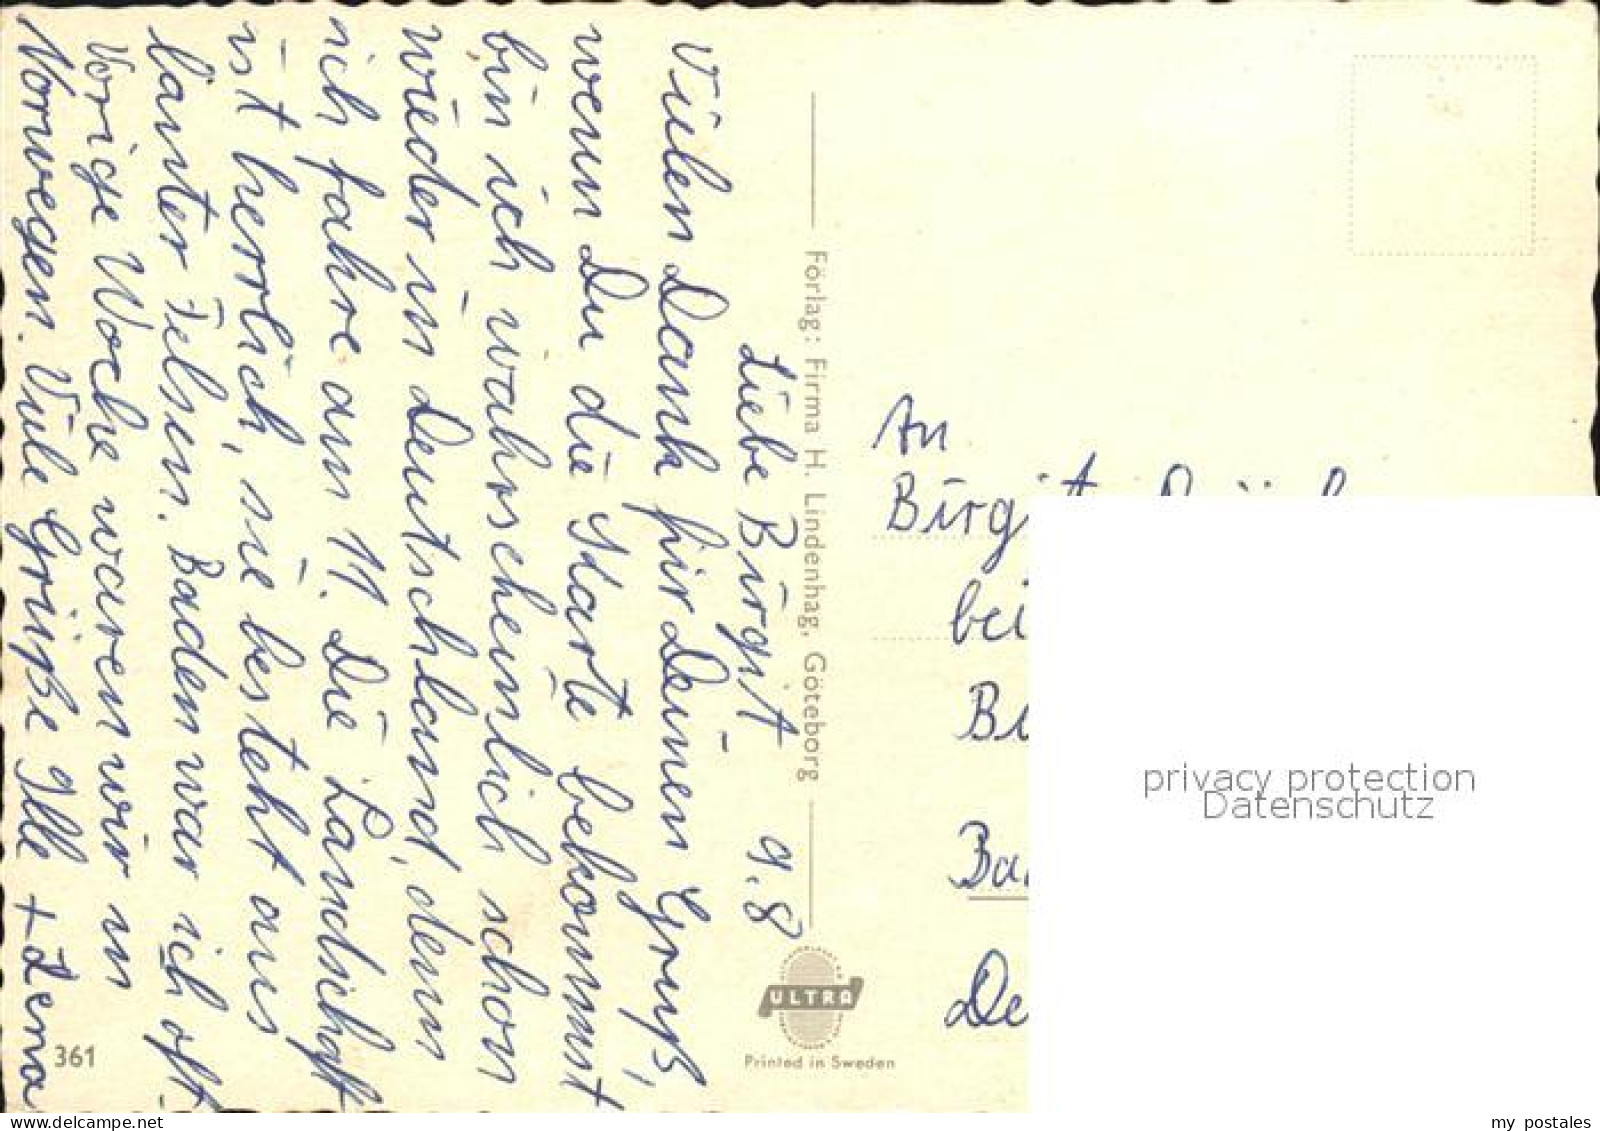 9.8
Liebe Birgit –
Vielen Dank für Deinen Gruß,
wenn Du die Karte bekommst
bin ich wahrscheinlich schon
wieder in Deutschland, denn
ich fahre am 11. Die Landschaft
ist herrlich, sie besteht aus
lauter Felsen. Baden war ich oft.
Vorige Woche waren wir in
Norwegen. Viele Grüße Ille +
Förlag: Firma H. Lindenhag, Göteborg
ULTRA
Printed in Sweden
361
An
Birgit
bei
privacy protection
Datenschutz
my postales